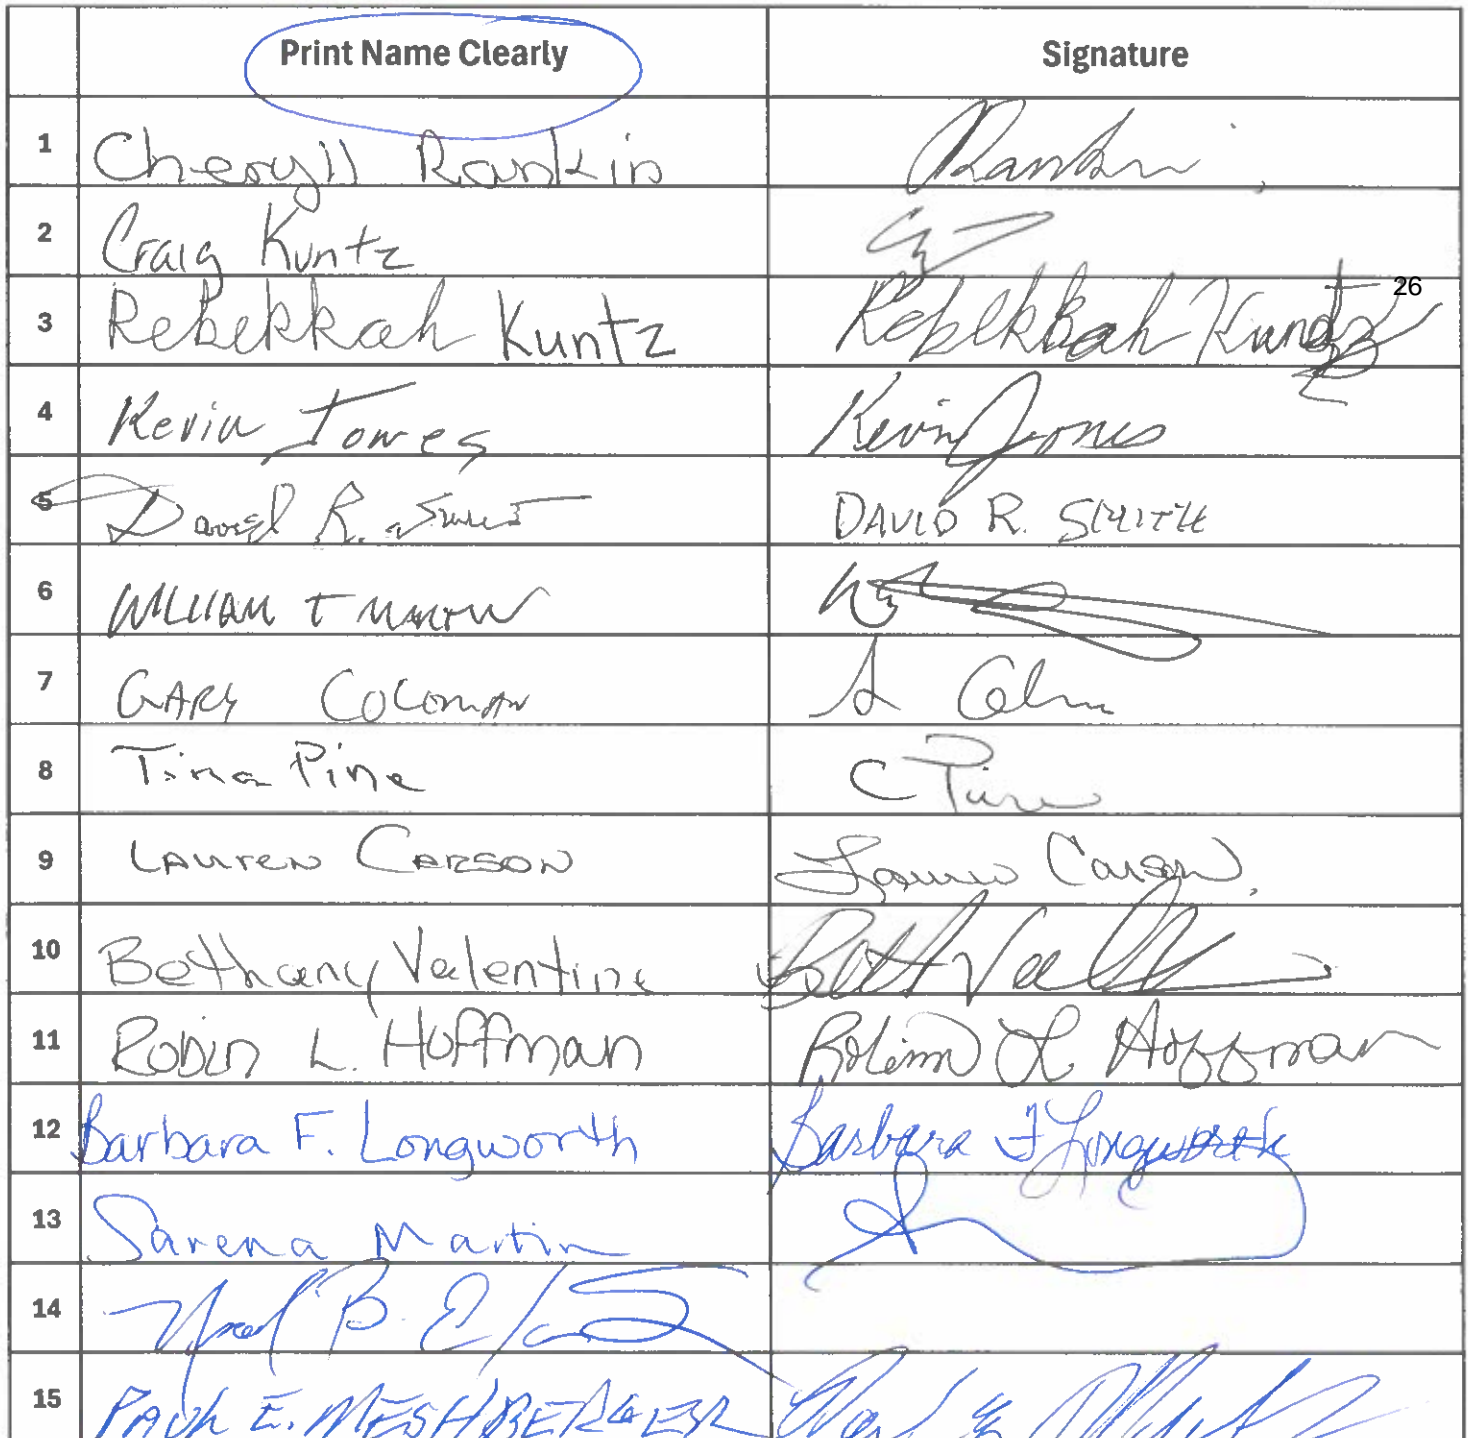 Print Name Clearly Signature
1 Cheryll Rankin Rankin
2 Craig Kuntz
26
3 Rebekkah Kuntz Rebekkah Kuntz
4 Kevin Jones Kevin Jones
5 David R. Smith DAVID R. SMITH
6 WILLIAM T MARTIN
7 GARY COLOMAN
8 Tina Pine C Pine
9 LAUREN CARSON Lauren Carson
10 Bethany Valentine
11 Robin L. Hoffman Robin L. Hoffman
12 Barbara F. Longworth Barbara F Longworth
13 Sarena Martin
14
15 PAUL E. MESHBERGER